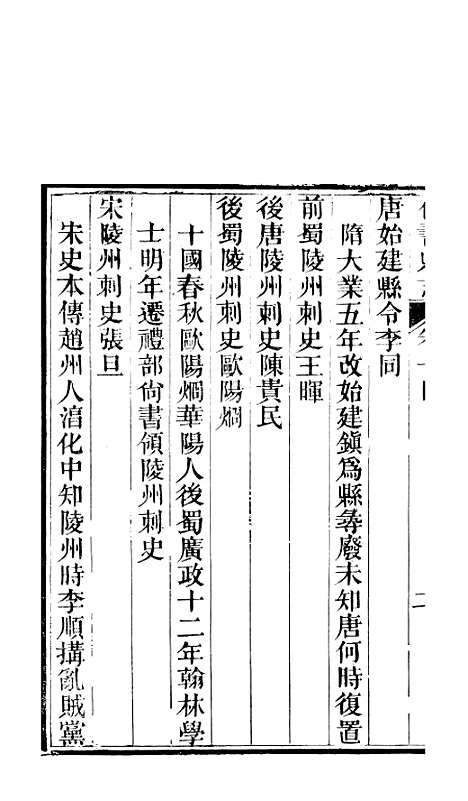 唐始建縣令李同
隋大業五年改始建鎭爲縣尋廢未知唐何時復置
前蜀陵州刺史王暉
後唐陵州刺史陳貴民
後蜀陵州刺史歐陽烱
十國春秋歐陽烱華陽人後蜀廣政十二年翰林學
士明年遷禮部尙書領陵州刺史
宋陵州刺史張旦
宋史本傳趙州人淯化中知陵州時李順搆亂賊黨